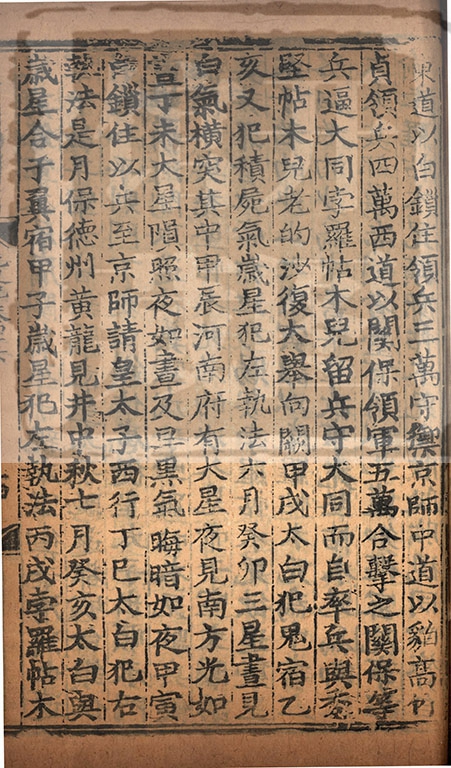 東道以白鎖住領兵三萬守禦京師中道以貊高
貞領兵四萬西道以關保領軍五萬合擊之關保等
兵逼大同孛羅帖木兒留兵守大同而自率兵與
堅帖木兒老的沙復大舉向闕甲戌太白犯鬼宿乙
亥又犯積屍氣歲星犯左執法六月癸卯三星晝見
白氣橫突其中甲辰河南府有大星夜見南方光如
晝丁未大星隕照夜如晝及旦黑氣晦暗如夜甲寅
白鎖住以兵至京師請皇太子西行丁巳太白犯右
執法是月保德州黃龍見井中秋七月癸亥太白與
歲星合于翼宿甲子歲星犯左執法丙戌孛羅帖木